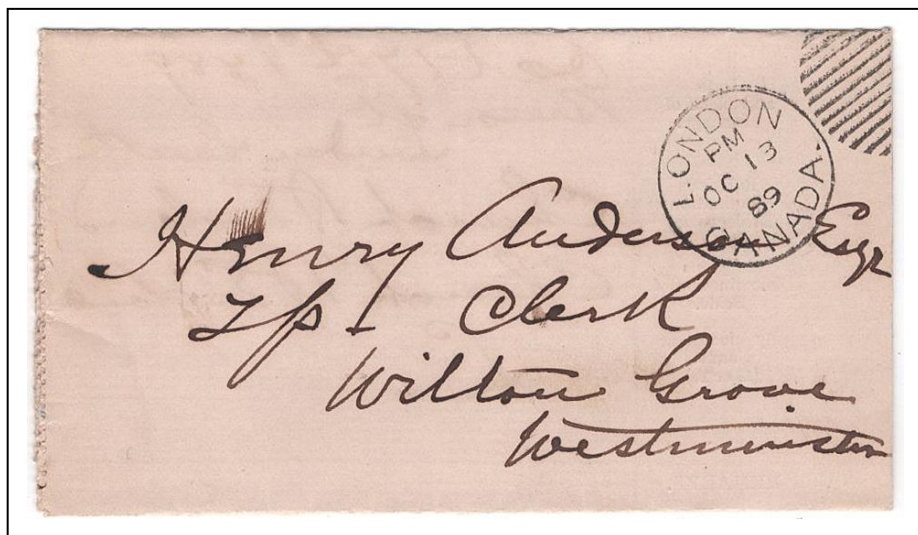 LONDON
PM
OC 13
89
CANADA.
Henry Anderson Esqr
Tp Clerk
Wilton Grove
Westminster